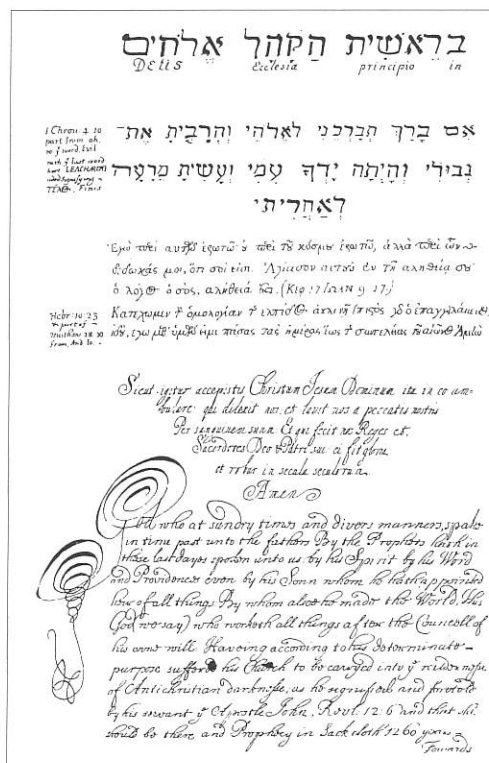 בְרֵאשִׁית הַקָּהָל אֱלֹהִים
DEUS Ecclesia principio in
1 Chron: 4 10
part from oh,
to y word, Evil
with y last word
Finis
אִם בָּרֵךְ תְּבָרְכֵנִי לֵאלֹהַי וְהִרְבִּיתָ אֶת־
גְּבוּלִי וְהָיְתָה יָדְךָ עִמִּי וְעָשִׂיתָ מֵרָעָה
לְאַחֲרִיתִי
Ἐγὼ αὐτῶν ἐρωτῶ· ὐ τοῦ κόσμου ἐρωτῶ, ἀλλὰ ὧν
δέδωκάς μοι, ὅτι σοί εἰσι. Ἁγίασον ἐν τῇ ἀληθείᾳ σου
ὁ λόγος ὁ σὸς, ἀλήθειά
Hebr: 10 23
& part of
Matthew 28 20
from, And lo.
Κατέχωμεν ὁμολογίαν ἐλπίδος ἀκλινῆ
ἐγὼ εἰμι πάσας τὰς ἡμέρας ἕως συντελείας αἰῶνος Ἀμήν
Sicut igitur accepistis Christum Jesum Dominum ita in eo am-
bulate: qui dilexit nos et lavit nos a peccatis nostris
Per sanguinem suum Et qui fecit nos Reges et
Sacerdotes Deo & Patri suo ei sit gloria
et robur in secula seculorum
Amen
God who at sundry times and divers manners, spake
in time past unto the fathers By the Prophets hath in
these last dayes spoken unto us by his Spirit by his Word
and Providences even by his Sonn whom he hath appointed
heir of all things By whom also he made the World. This
God (we say) who worketh all things after the Councell of
his owne will Haveing according to his determinate
purpose suffered his Church to be carryed into y wildernesse
of Antichristian darknesse, as he signified and foretold
by his servant y Apostle John, Revl: 12 6 and that shee
should be there and Prophecy in Sackcloth 1260 years
Towards